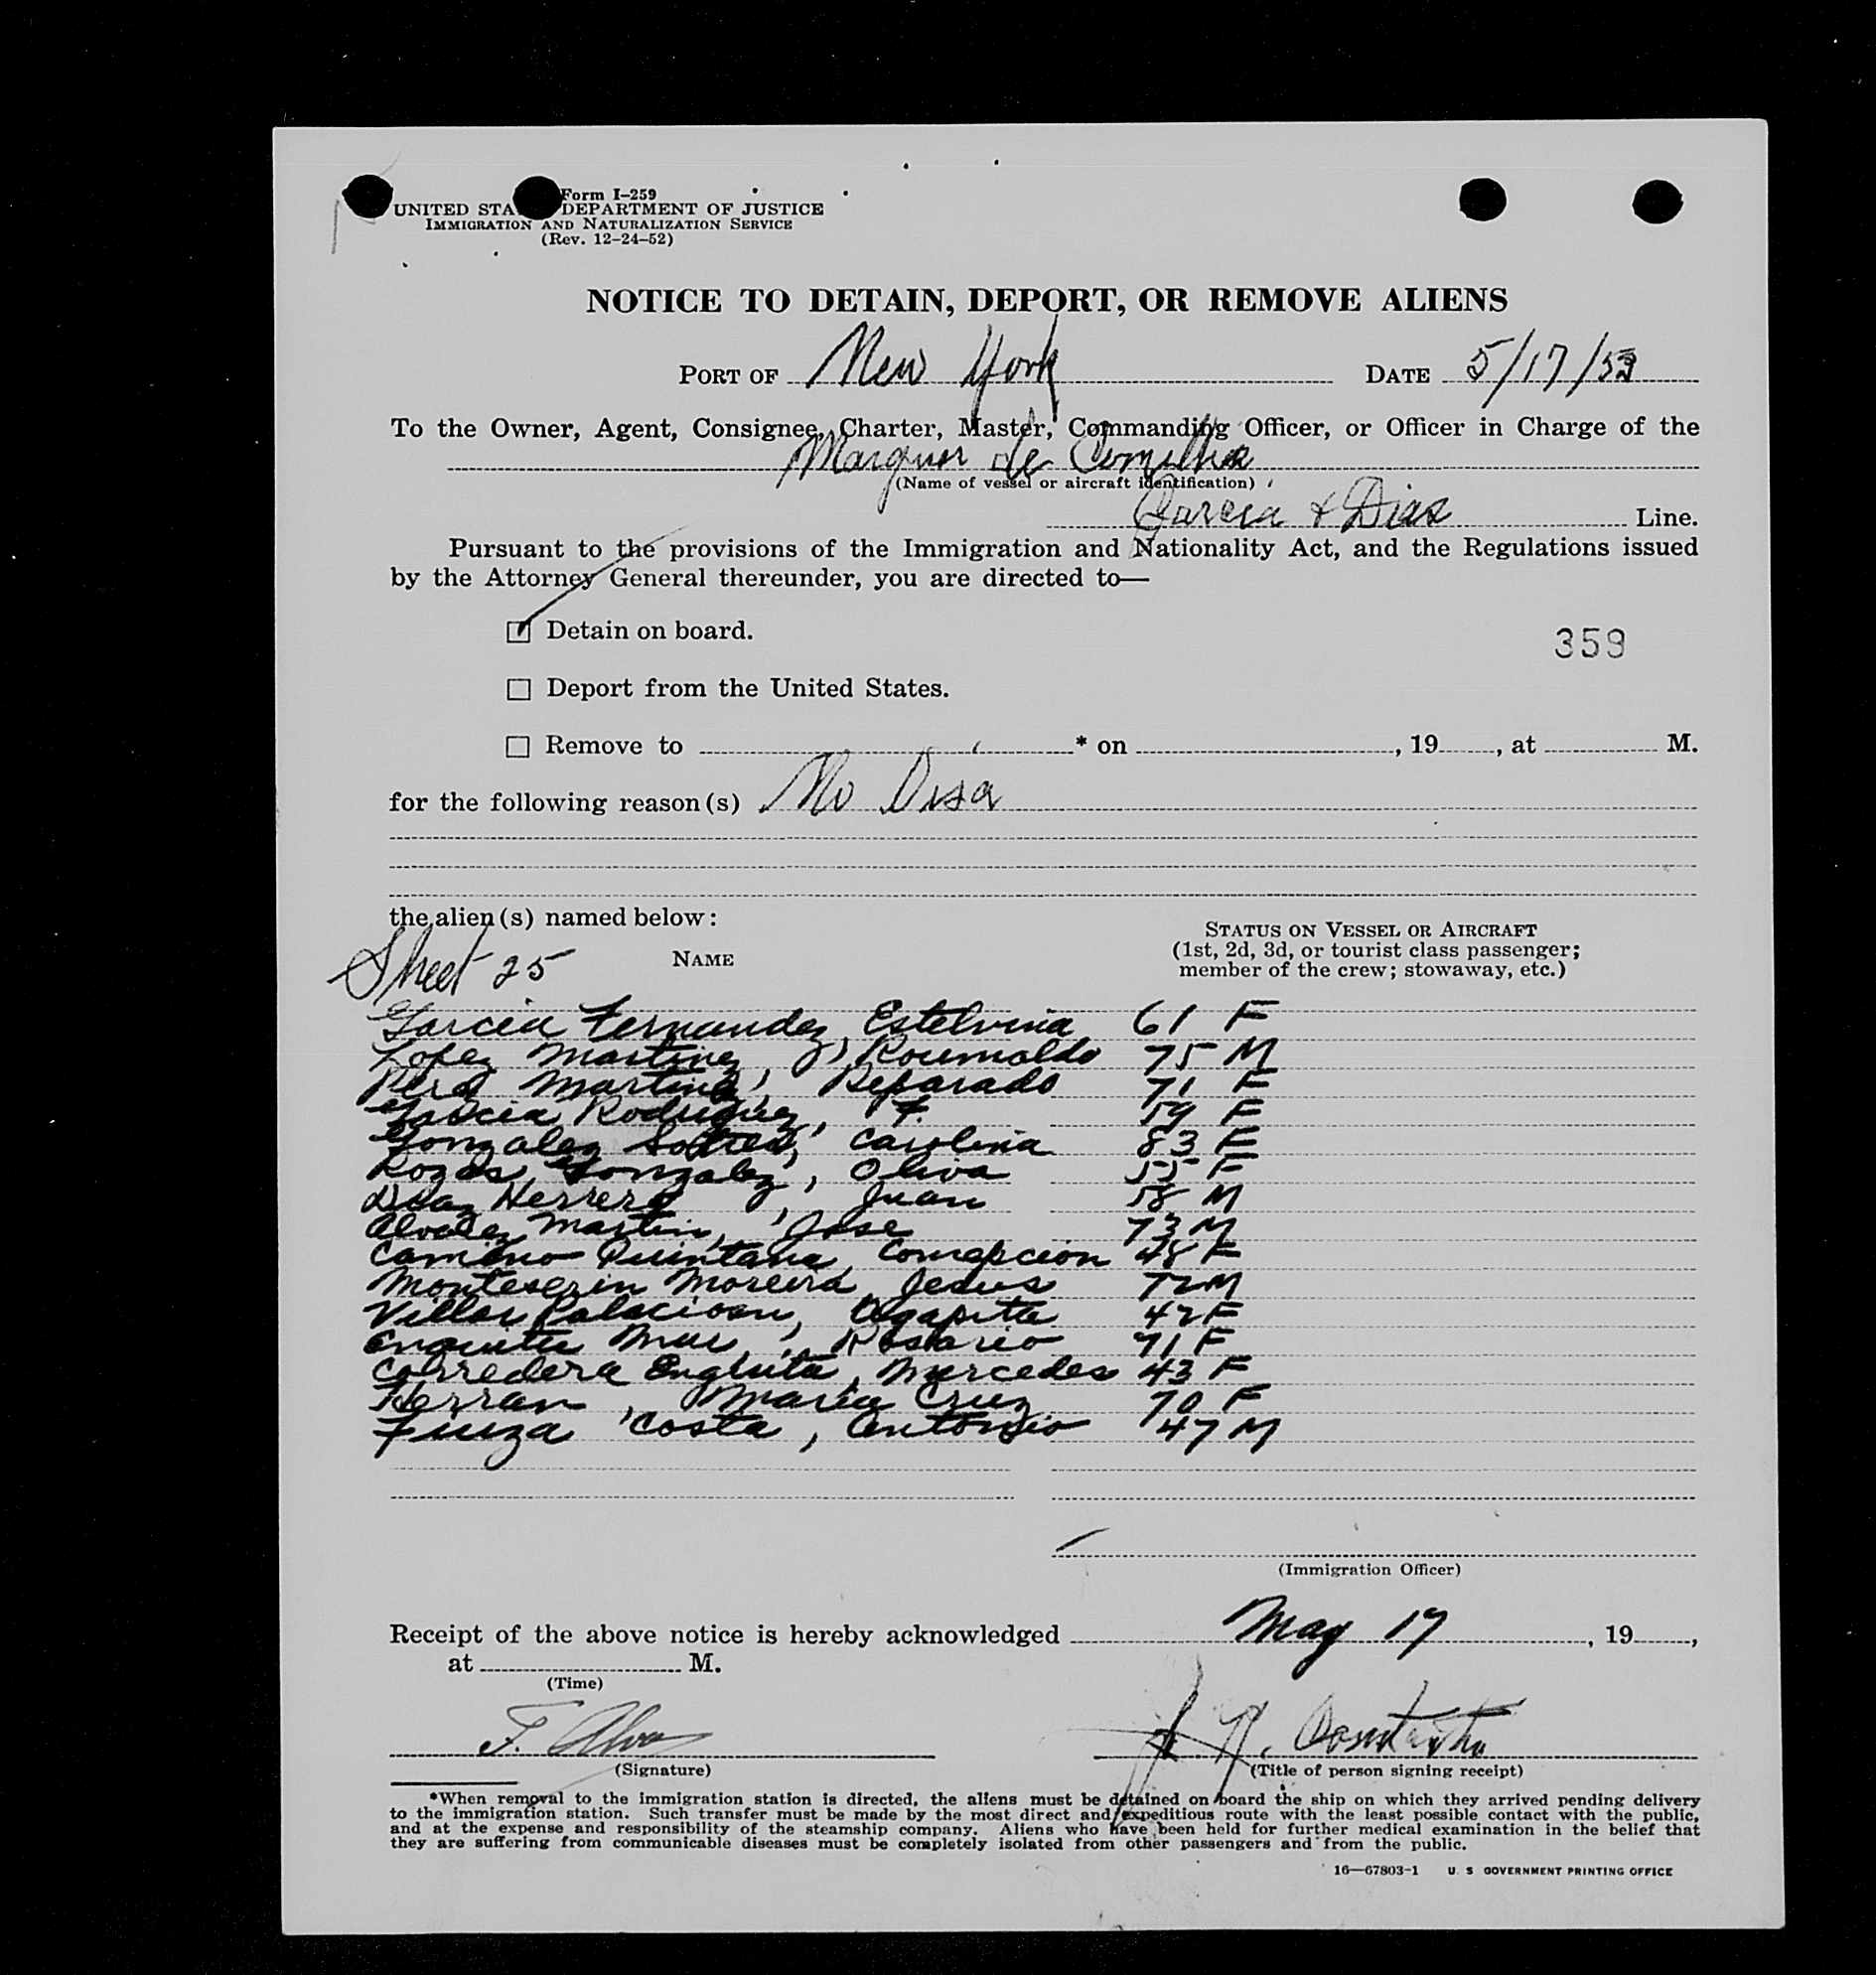 Form I-259
UNITED STA DEPARTMENT OF JUSTICE
IMMIGRATION AND NATURALIZATION SERVICE
(Rev. 12-24-52)
NOTICE TO DETAIN, DEPORT, OR REMOVE ALIENS
PORT OF New York DATE 5/17/53
To the Owner, Agent, Consignee, Charter, Master, Commanding Officer, or Officer in Charge of the
Marques de Comillas
(Name of vessel or aircraft identification)
Garcia & Dias Line.
Pursuant to the provisions of the Immigration and Nationality Act, and the Regulations issued
by the Attorney General thereunder, you are directed to—
Detain on board.
359
Deport from the United States.
Remove to * on , 19 , at M.
for the following reason(s) No Visa
the alien(s) named below:
STATUS ON VESSEL OR AIRCRAFT
(1st, 2d, 3d, or tourist class passenger;
member of the crew; stowaway, etc.)
Sheet 25 NAME
Garcia Fernandez, Estelvina 61 F
Lopez Martinez, Roumaldo 75 M
Martinez, Deparado 71 F
Garcia Rodriguez, F. 59 F
Gonzalez, Carolina 83 F
Rozas Gonzalez, Oliva 55 F
Diaz Herrero, Juan 58 M
Alvarez Martin, Jose 73 M
Camino Quintana, Concepcion 48 F
Monteserin Moreira, Jesus 72 M
Villar Palacios, Agapita 42 F
Enguita, Rosario 71 F
Corredera Enguita, Mercedes 43 F
Herran, Maria Cruz 70 F
Fiuza Costa, Antonio 47 M
(Immigration Officer)
Receipt of the above notice is hereby acknowledged May 17 , 19 ,
at M.
(Time)
F. Alva
(Signature)
(Title of person signing receipt)
*When removal to the immigration station is directed, the aliens must be detained on board the ship on which they arrived pending delivery
to the immigration station. Such transfer must be made by the most direct and expeditious route with the least possible contact with the public,
and at the expense and responsibility of the steamship company. Aliens who have been held for further medical examination in the belief that
they are suffering from communicable diseases must be completely isolated from other passengers and from the public.
16—67803-1 U. S. GOVERNMENT PRINTING OFFICE